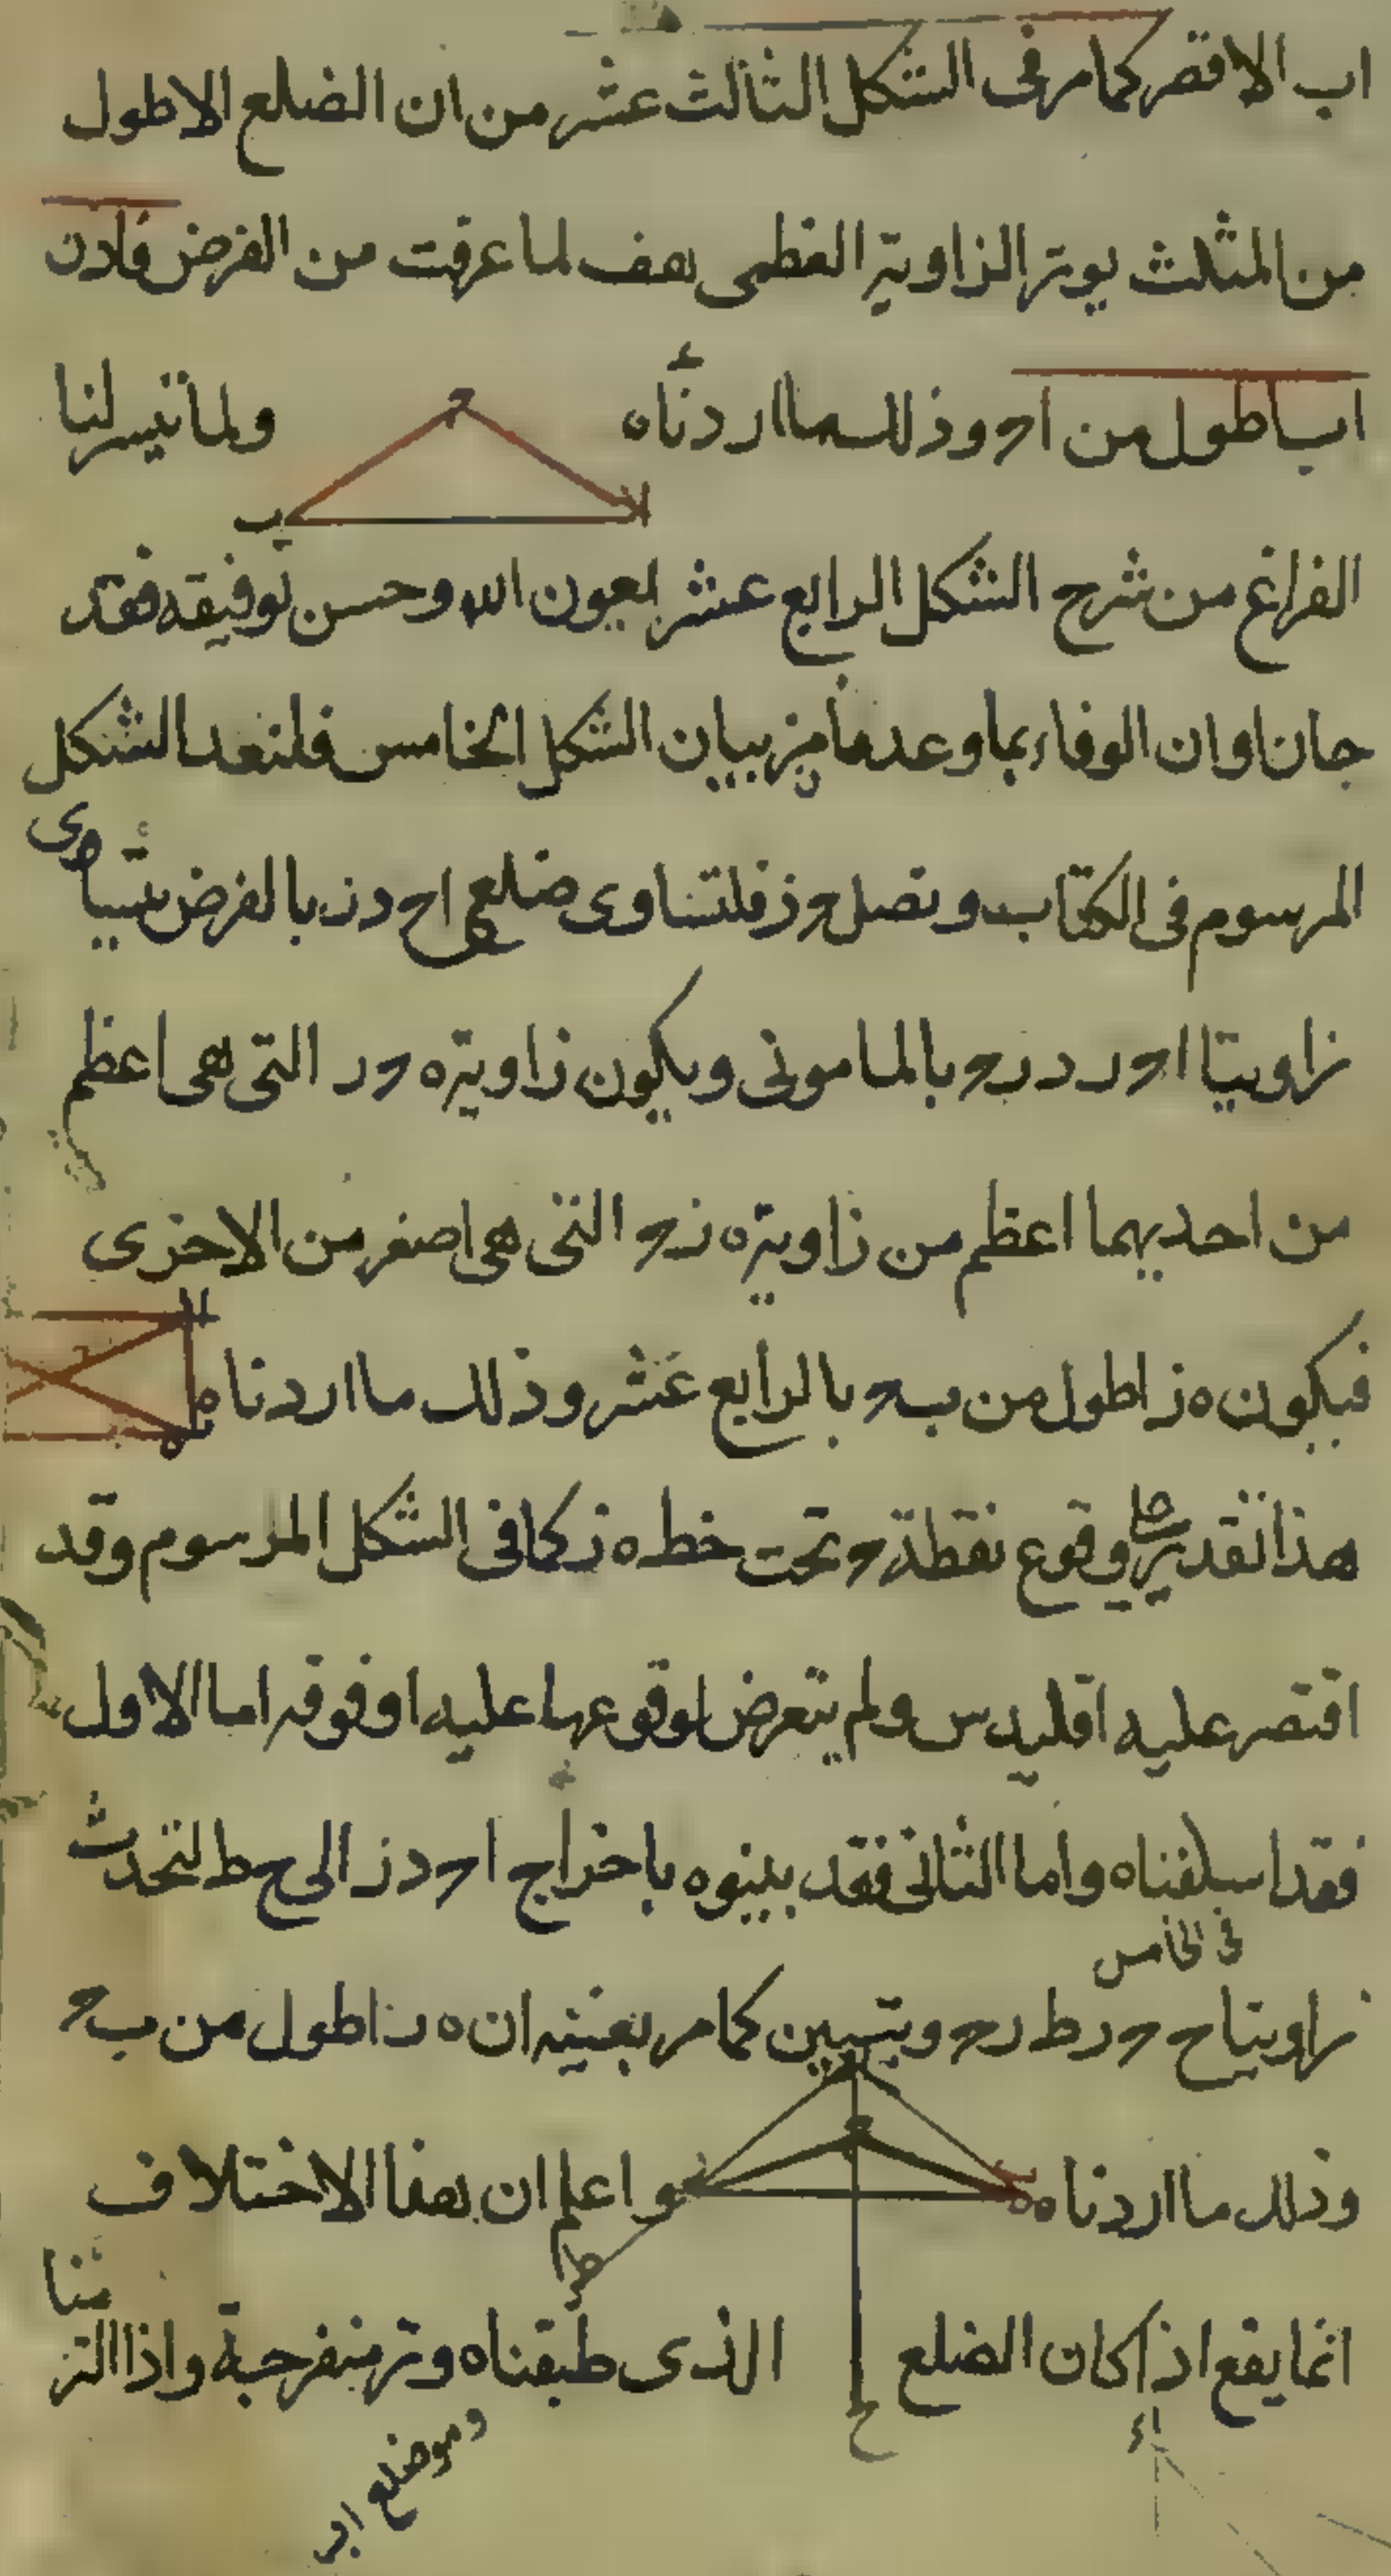 اب الاقصر كما مر فى الشكل الثالث عشر من ان الضلع الاطول
من المثلث يوتر الزاوية العظمى هف لما عرفت من الفرض فاذن
اب اطول من اح وذلك ما اردناه ولما تيسر لنا
ح
ا
ب
الفراغ من شرح الشكل الرابع عشر بعون الله وحسن توفيقه فقد
حان اوان الوفاء بما وعدنا من بيان الشكل الخامس فلنعد الشكل
المرسوم فى الكتاب ونصل ح ز فلتساوى ضلعى اح د ز بالفرض يتساوى
زاويتا ا ح ر د ر ح بالمامونى ويكون زاوية ه ح ر التى هى اعظم
من احديهما اعظم من زاوية ه ز ح التى هى اصغر من الاخرى
فيكون ه ز اطول من ب ح بالرابع عشر وذلك ما اردناه
هذا تقدير وقوع نقطة ح تحت خط ه ز كما فى الشكل المرسوم وقد
اقتصر عليه اقليدس ولم يتعرض لوقوعها عليه او فوقه اما الاول
فقد اسلفناه واما الثانى فقد بينوه باخراج ا ح د ز الى ح ط لتحدث
فى الخامس
زاويتا ح ح ر ط ر ح ويتبين كما مر بعينه ان ه ر اطول من ب ح
وذلك ما اردناه واعلم ان هذا الاختلاف
ح
ط
انما يقع اذا كان الضلع الذى طبقناه وتر منفرجة واذا التزمنا
ح
وهو ضلع اب